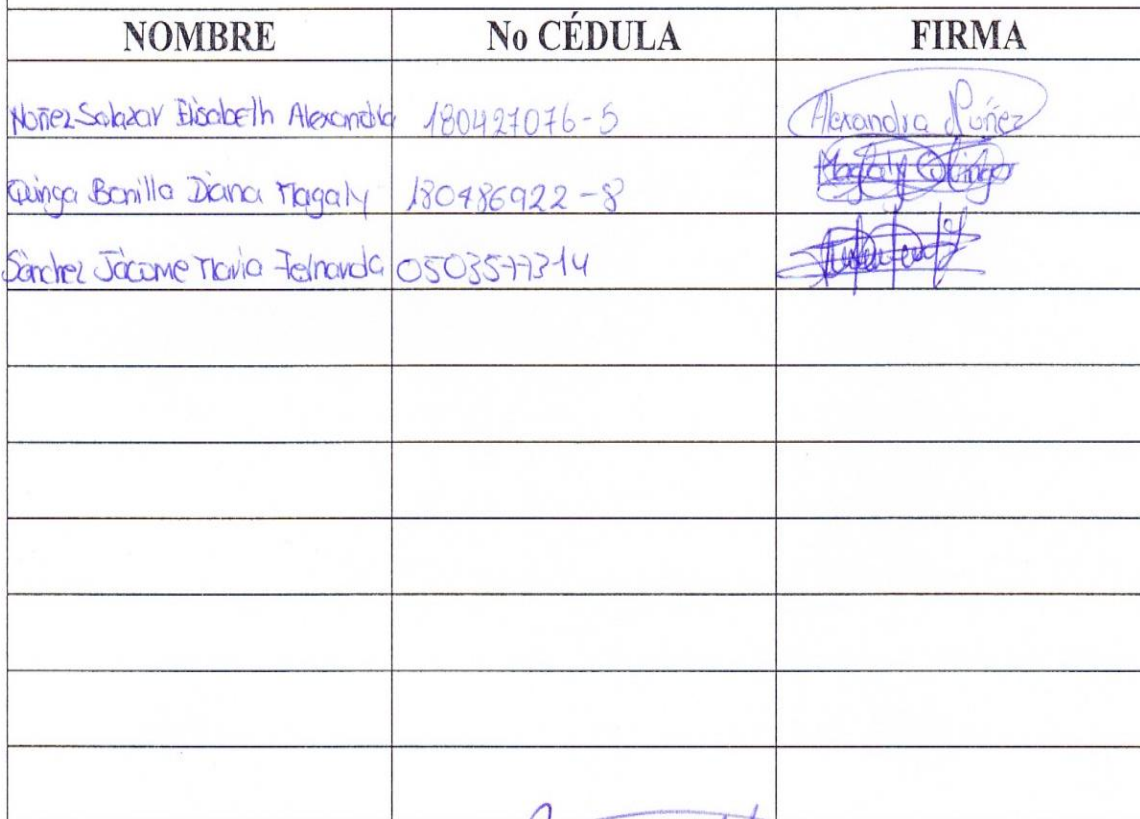 NOMBRE No CÉDULA FIRMA
Noñez Salazar Elisabeth Alexandra 180427076-5 Alexandra Núñez
Quinga Bonilla Diana Magaly 180486922-8 Magaly Quinga
Sánchez Jácome María Fernanda 0503577314